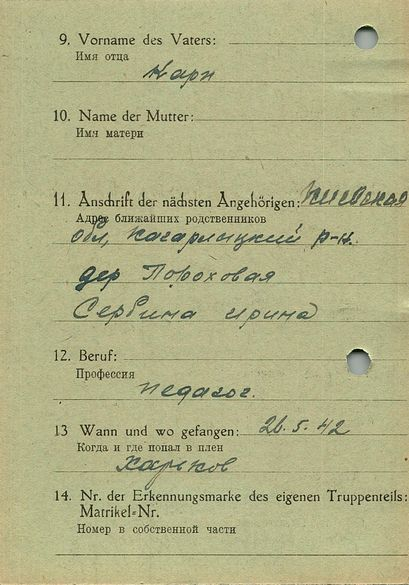 9. Vorname des Vaters:
Имя отца
Карп
10. Name der Mutter:
Имя матери
11. Anschrift der nächsten Angehörigen: Киевская
Адрес ближайших родственников
обл, Кагарлыцкий р-н.
дер Пороховая
Сербина Ирина
12. Beruf:
Профессия
педагог.
13 Wann und wo gefangen: 26.5.42
Когда и где попал в плен
Харьков
14. Nr. der Erkennungsmarke des eigenen Truppenteils:
Matrikel-Nr.
Номер в собственной части